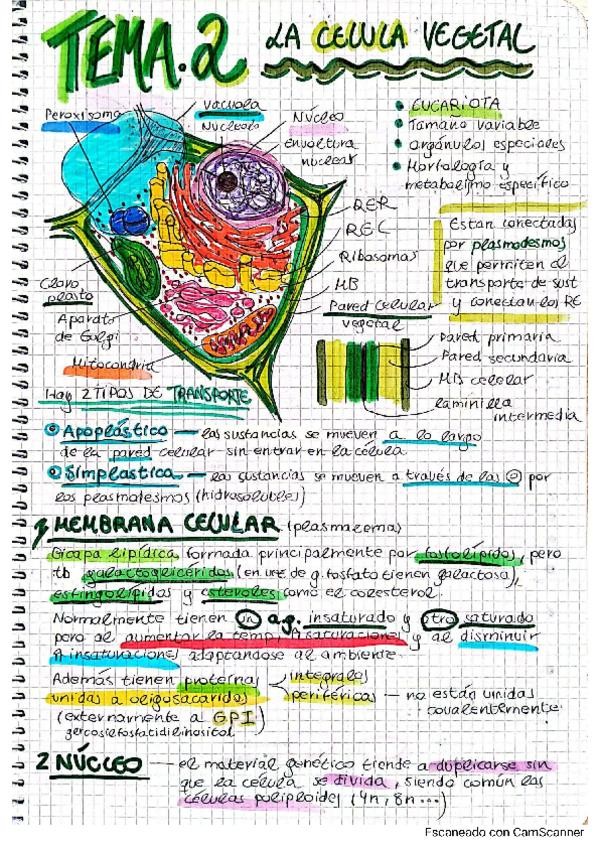 TEMA.2 LA CELULA VEGETAL
Peroxisoma
vacuola
Nucleolo
Núcleo
envoltura
nuclear
EUCARIOTA
Tamaño variable
orgánulos especiales
Morfología y
metabolismo específico
RER
REL
Ribosomas
MB
Pared celular
vegetal
Están conectadas
por plasmodesmos
que permiten el
transporte de sust
y conectan los RE
Cloro
plasto
Aparato
de Golgi
Mitocondria
pared primaria
Pared secundaria
MB celular
laminilla
intermedia
Hay 2 TIPOS DE TRANSPORTE
Apoplástico — las sustancias se mueven a lo largo
de la pared celular sin entrar en la célula
Simplastica — las sustancias se mueven a través de las por
los plasmodesmos (hidrosolubles)
1 MEMBRANA CELULAR (plasmalema)
Bicapa lipídica formada principalmente por fosfolípidos, pero
tb galactoglicéridos (en vez de g. fosfato tienen galactosa),
esfingolípidos y esteroles como el colesterol.
Normalmente tienen un a.g. insaturado y otro saturado
pero al aumentar la temp. saturaciones y al disminuir
insaturaciones adaptándose al ambiente
Además tienen proteínas integrales
unidas a oligosacáridos periféricas — no están unidas
covalentemente
(externamente a GPI)
2 NÚCLEO — el material genético tiende a duplicarse sin
que la célula se divida, siendo común las
células poliploides (4n, 8n...)
Escaneado con CamScanner